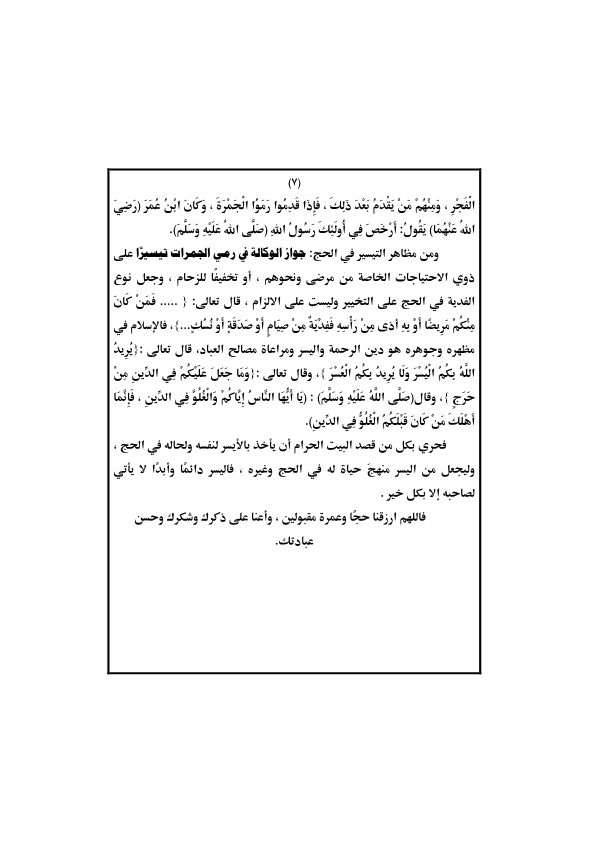 (٧)
الْفَجْرِ ، وَمِنْهُمْ مَنْ يَقْدَمُ بَعْدَ ذَلِكَ ، فَإِذَا قَدِمُوا رَمَوُا الْجَمْرَةَ ، وَكَانَ ابْنُ عُمَرَ (رَضِيَ
اللهُ عَنْهُمَا) يَقُولُ: أَرْخَصَ فِي أُولَئِكَ رَسُولُ اللهِ (صَلَّى اللهُ عَلَيْهِ وَسَلَّمَ).
ومن مظاهر التيسير في الحج: جواز الوكالة في رمي الجمرات تيسيرًا على
ذوي الاحتياجات الخاصة من مرضى ونحوهم ، أو تخفيفًا للزحام ، وجعل نوع
الفدية في الحج على التخيير وليست على الالزام ، قال تعالى: { ..... فَمَنْ كَانَ
مِنْكُمْ مَرِيضًا أَوْ بِهِ أذى مِنْ رَأْسِهِ فَفِدْيَةٌ مِنْ صِيَامٍ أَوْ صَدَقَةٍ أَوْ نُسُكٍ...}، فالإسلام في
مظهره وجوهره هو دين الرحمة واليسر ومراعاة مصالح العباد، قال تعالى :{يُرِيدُ
اللَّهُ بِكُمُ الْيُسْرَ وَلَا يُرِيدُ بِكُمُ الْعُسْرَ }، وقال تعالى :{وَمَا جَعَلَ عَلَيْكُمْ فِي الدِّينِ مِنْ
حَرَجٍ }، وقال(صَلَّى اللَّهُ عَلَيْهِ وَسَلَّمَ) : (يَا أَيُّهَا النَّاسُ إِيَّاكُمْ وَالْغُلُوَّ فِي الدِّينِ ، فَإِنَّمَا
أَهْلَكَ مَنْ كَانَ قَبْلَكُمُ الْغُلُوُّ فِي الدِّينِ).
فحري بكل من قصد البيت الحرام أن يأخذ بالأيسر لنفسه ولحاله في الحج ،
وليجعل من اليسر منهجَ حياة له في الحج وغيره ، فاليسر دائمًا وأبدًا لا يأتي
لصاحبه إلا بكل خير .
فاللهم ارزقنا حجًا وعمرة مقبولين ، وأعنا على ذكرك وشكرك وحسن
عبادتك.